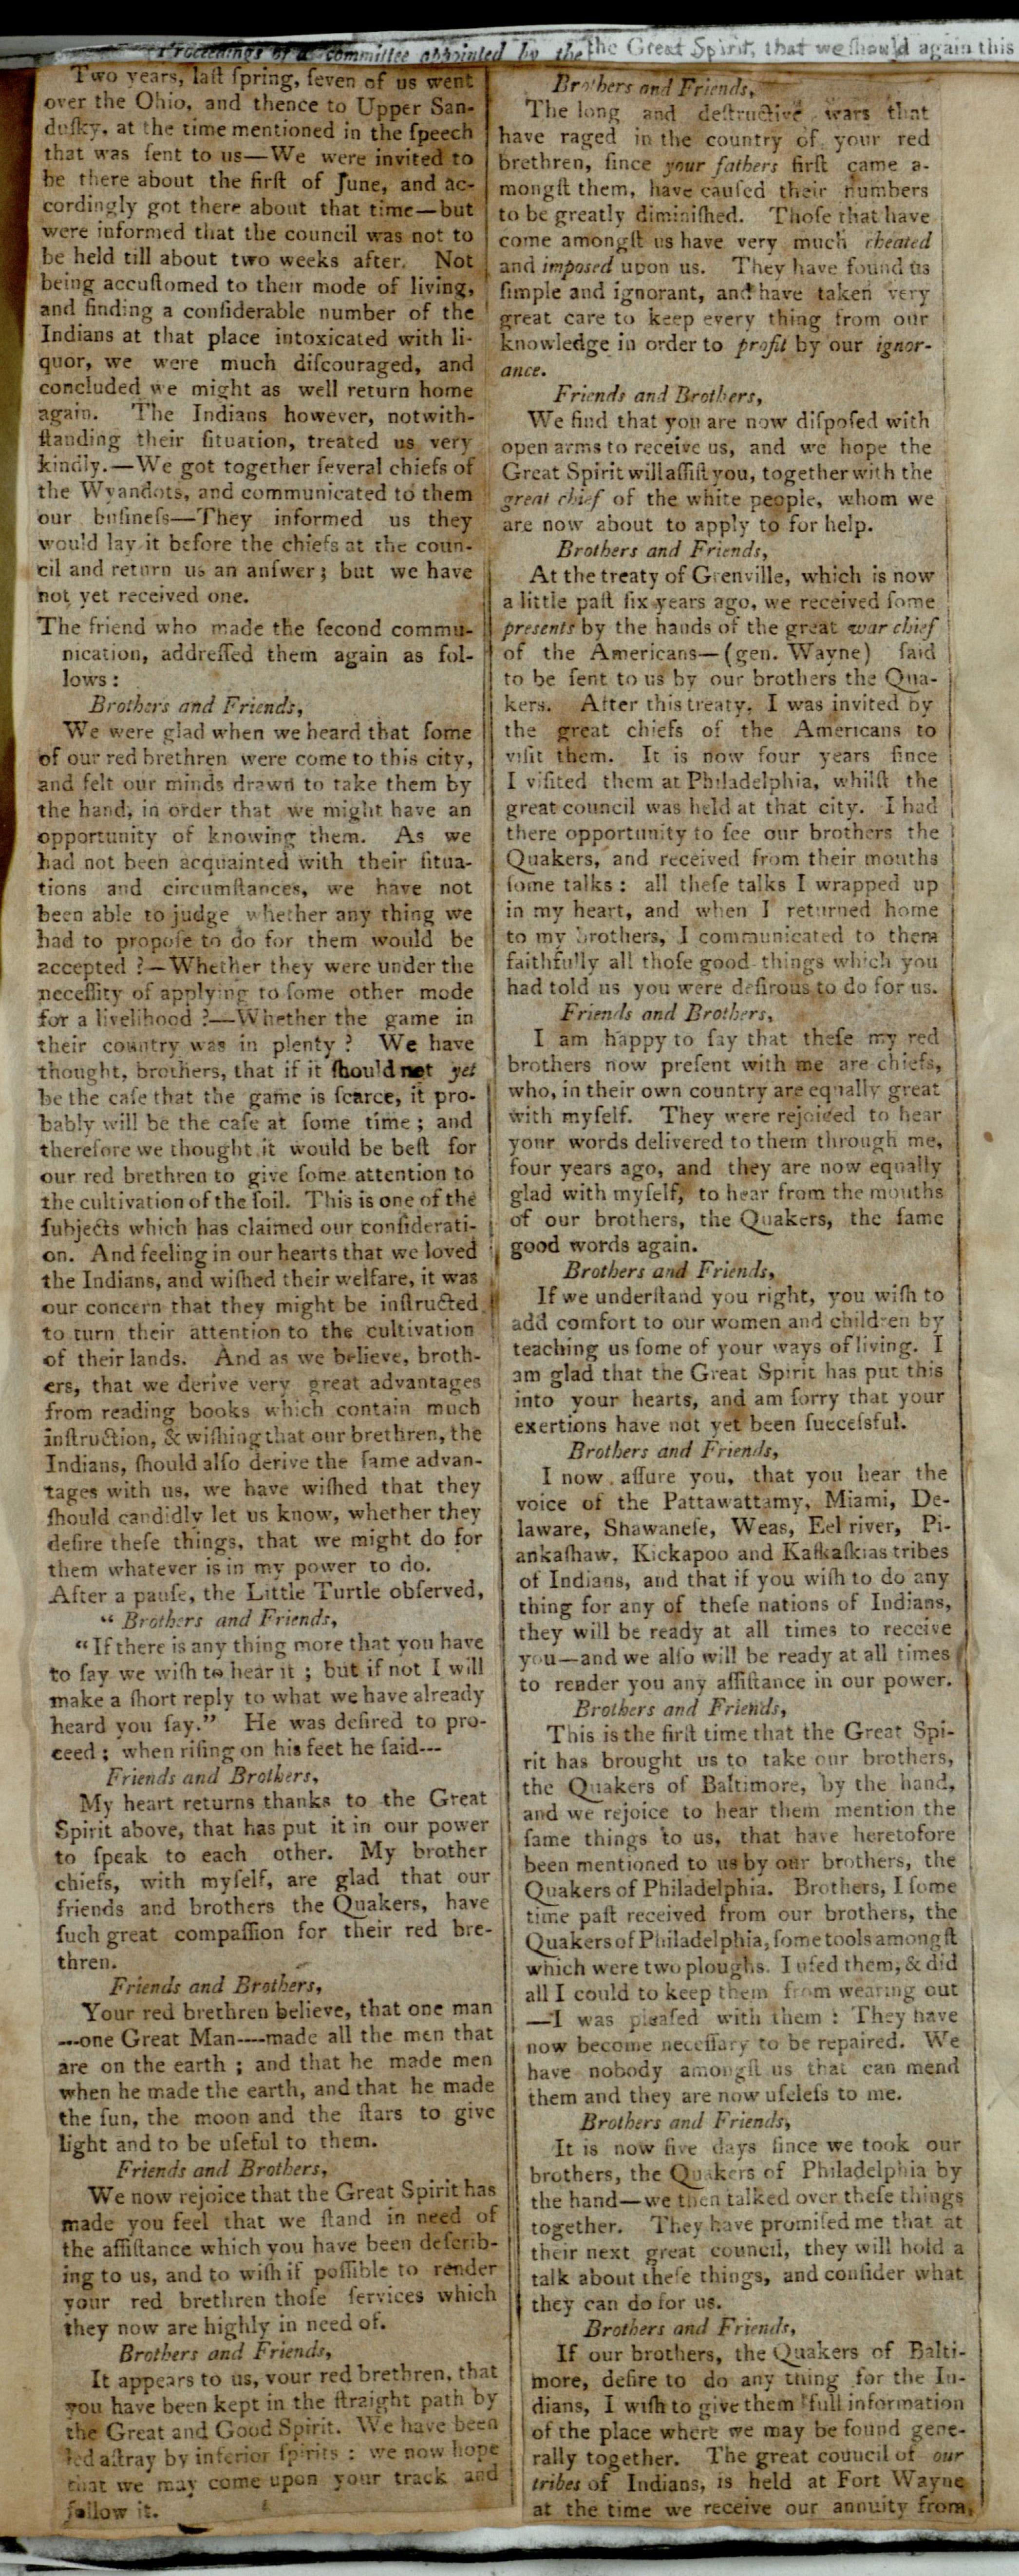 Proceedings of a committee appointed by the
the Great Spirit, that we ſhould again this
Two years, laſt ſpring, ſeven of us went
over the Ohio, and thence to Upper San-
duſky, at the time mentioned in the ſpeech
that was ſent to us—We were invited to
be there about the firſt of June, and ac-
cordingly got there about that time—but
were informed that the council was not to
be held till about two weeks after. Not
being accuſtomed to their mode of living,
and finding a conſiderable number of the
Indians at that place intoxicated with li-
quor, we were much diſcouraged, and
concluded we might as well return home
again. The Indians however, notwith-
ſtanding their ſituation, treated us very
kindly.—We got together ſeveral chiefs of
the Wyandots, and communicated to them
our buſineſs—They informed us they
would lay it before the chiefs at the coun-
cil and return us an anſwer; but we have
not yet received one.
The friend who made the ſecond commu-
nication, addreſſed them again as fol-
lows :
Brothers and Friends,
We were glad when we heard that ſome
of our red brethren were come to this city,
and felt our minds drawn to take them by
the hand, in order that we might have an
opportunity of knowing them. As we
had not been acquainted with their ſitua-
tions and circumſtances, we have not
been able to judge whether any thing we
had to propoſe to do for them would be
accepted ?—Whether they were under the
neceſſity of applying to ſome other mode
for a livelihood ?—Whether the game in
their country was in plenty ? We have
thought, brothers, that if it ſhould not yet
be the caſe that the game is ſcarce, it pro-
bably will be the caſe at ſome time ; and
therefore we thought it would be beſt for
our red brethren to give ſome attention to
the cultivation of the ſoil. This is one of the
ſubjects which has claimed our conſiderati-
on. And feeling in our hearts that we loved
the Indians, and wiſhed their welfare, it was
our concern that they might be inſtructed
to turn their attention to the cultivation
of their lands. And as we believe, broth-
ers, that we derive very great advantages
from reading books which contain much
inſtruction, & wiſhing that our brethren, the
Indians, ſhould alſo derive the ſame advan-
tages with us, we have wiſhed that they
ſhould candidly let us know, whether they
deſire theſe things, that we might do for
them whatever is in my power to do.
After a pauſe, the Little Turtle obſerved,
“ Brothers and Friends,
“If there is any thing more that you have
to ſay we wiſh to hear it ; but if not I will
make a ſhort reply to what we have already
heard you ſay.” He was deſired to pro-
ceed ; when riſing on his feet he ſaid---
Friends and Brothers,
My heart returns thanks to the Great
Spirit above, that has put it in our power
to ſpeak to each other. My brother
chiefs, with myſelf, are glad that our
friends and brothers the Quakers, have
ſuch great compaſſion for their red bre-
thren.
Friends and Brothers,
Your red brethren believe, that one man
---one Great Man----made all the men that
are on the earth ; and that he made men
when he made the earth, and that he made
the ſun, the moon and the ſtars to give
light and to be uſeful to them.
Friends and Brothers,
We now rejoice that the Great Spirit has
made you feel that we ſtand in need of
the aſſiſtance which you have been deſcrib-
ing to us, and to wiſh if poſſible to render
your red brethren thoſe ſervices which
they now are highly in need of.
Brothers and Friends,
It appears to us, your red brethren, that
you have been kept in the ſtraight path by
the Great and Good Spirit. We have been
led aſtray by inferior ſpirits : we now hope
that we may come upon your track and
follow it.
Brothers and Friends,
The long and deſtructive wars that
have raged in the country of your red
brethren, ſince your fathers firſt came a-
mongſt them, have cauſed their numbers
to be greatly diminiſhed. Thoſe that have
come amongſt us have very much cheated
and impoſed upon us. They have found us
ſimple and ignorant, and have taken very
great care to keep every thing from our
knowledge in order to profit by our ignor-
ance.
Friends and Brothers,
We find that you are now diſpoſed with
open arms to receive us, and we hope the
Great Spirit will aſſiſt you, together with the
great chief of the white people, whom we
are now about to apply to for help.
Brothers and Friends,
At the treaty of Grenville, which is now
a little paſt ſix years ago, we received ſome
preſents by the hands of the great war chief
of the Americans—(gen. Wayne) ſaid
to be ſent to us by our brothers the Qua-
kers. After this treaty, I was invited by
the great chiefs of the Americans to
viſit them. It is now four years ſince
I viſited them at Philadelphia, whilſt the
great council was held at that city. I had
there opportunity to ſee our brothers the
Quakers, and received from their mouths
ſome talks : all theſe talks I wrapped up
in my heart, and when I returned home
to my brothers, I communicated to them
faithfully all thoſe good things which you
had told us you were deſirous to do for us.
Friends and Brothers,
I am happy to ſay that theſe my red
brothers now preſent with me are chiefs,
who, in their own country are equally great
with myſelf. They were rejoiced to hear
your words delivered to them through me,
four years ago, and they are now equally
glad with myſelf, to hear from the mouths
of our brothers, the Quakers, the ſame
good words again.
Brothers and Friends,
If we underſtand you right, you wiſh to
add comfort to our women and children by
teaching us ſome of your ways of living. I
am glad that the Great Spirit has put this
into your hearts, and am ſorry that your
exertions have not yet been ſucceſsful.
Brothers and Friends,
I now aſſure you, that you hear the
voice of the Pattawattamy, Miami, De-
laware, Shawaneſe, Weas, Eel river, Pi-
ankaſhaw, Kickapoo and Kaſkaſkias tribes
of Indians, and that if you wiſh to do any
thing for any of theſe nations of Indians,
they will be ready at all times to receive
you—and we alſo will be ready at all times
to render you any aſſiſtance in our power.
Brothers and Friends,
This is the firſt time that the Great Spi-
rit has brought us to take our brothers,
the Quakers of Baltimore, by the hand,
and we rejoice to hear them mention the
ſame things to us, that have heretofore
been mentioned to us by our brothers, the
Quakers of Philadelphia. Brothers, I ſome
time paſt received from our brothers, the
Quakers of Philadelphia, ſome tools amongſt
which were two ploughs. I uſed them, & did
all I could to keep them from wearing out
—I was pleaſed with them : They have
now become neceſſary to be repaired. We
have nobody amongſt us that can mend
them and they are now uſeleſs to me.
Brothers and Friends,
It is now five days ſince we took our
brothers, the Quakers of Philadelphia by
the hand—we then talked over theſe things
together. They have promiſed me that at
their next great council, they will hold a
talk about theſe things, and conſider what
they can do for us.
Brothers and Friends,
If our brothers, the Quakers of Balti-
more, deſire to do any thing for the In-
dians, I wiſh to give them full information
of the place where we may be found gene-
rally together. The great council of our
tribes of Indians, is held at Fort Wayne
at the time we receive our annuity from,